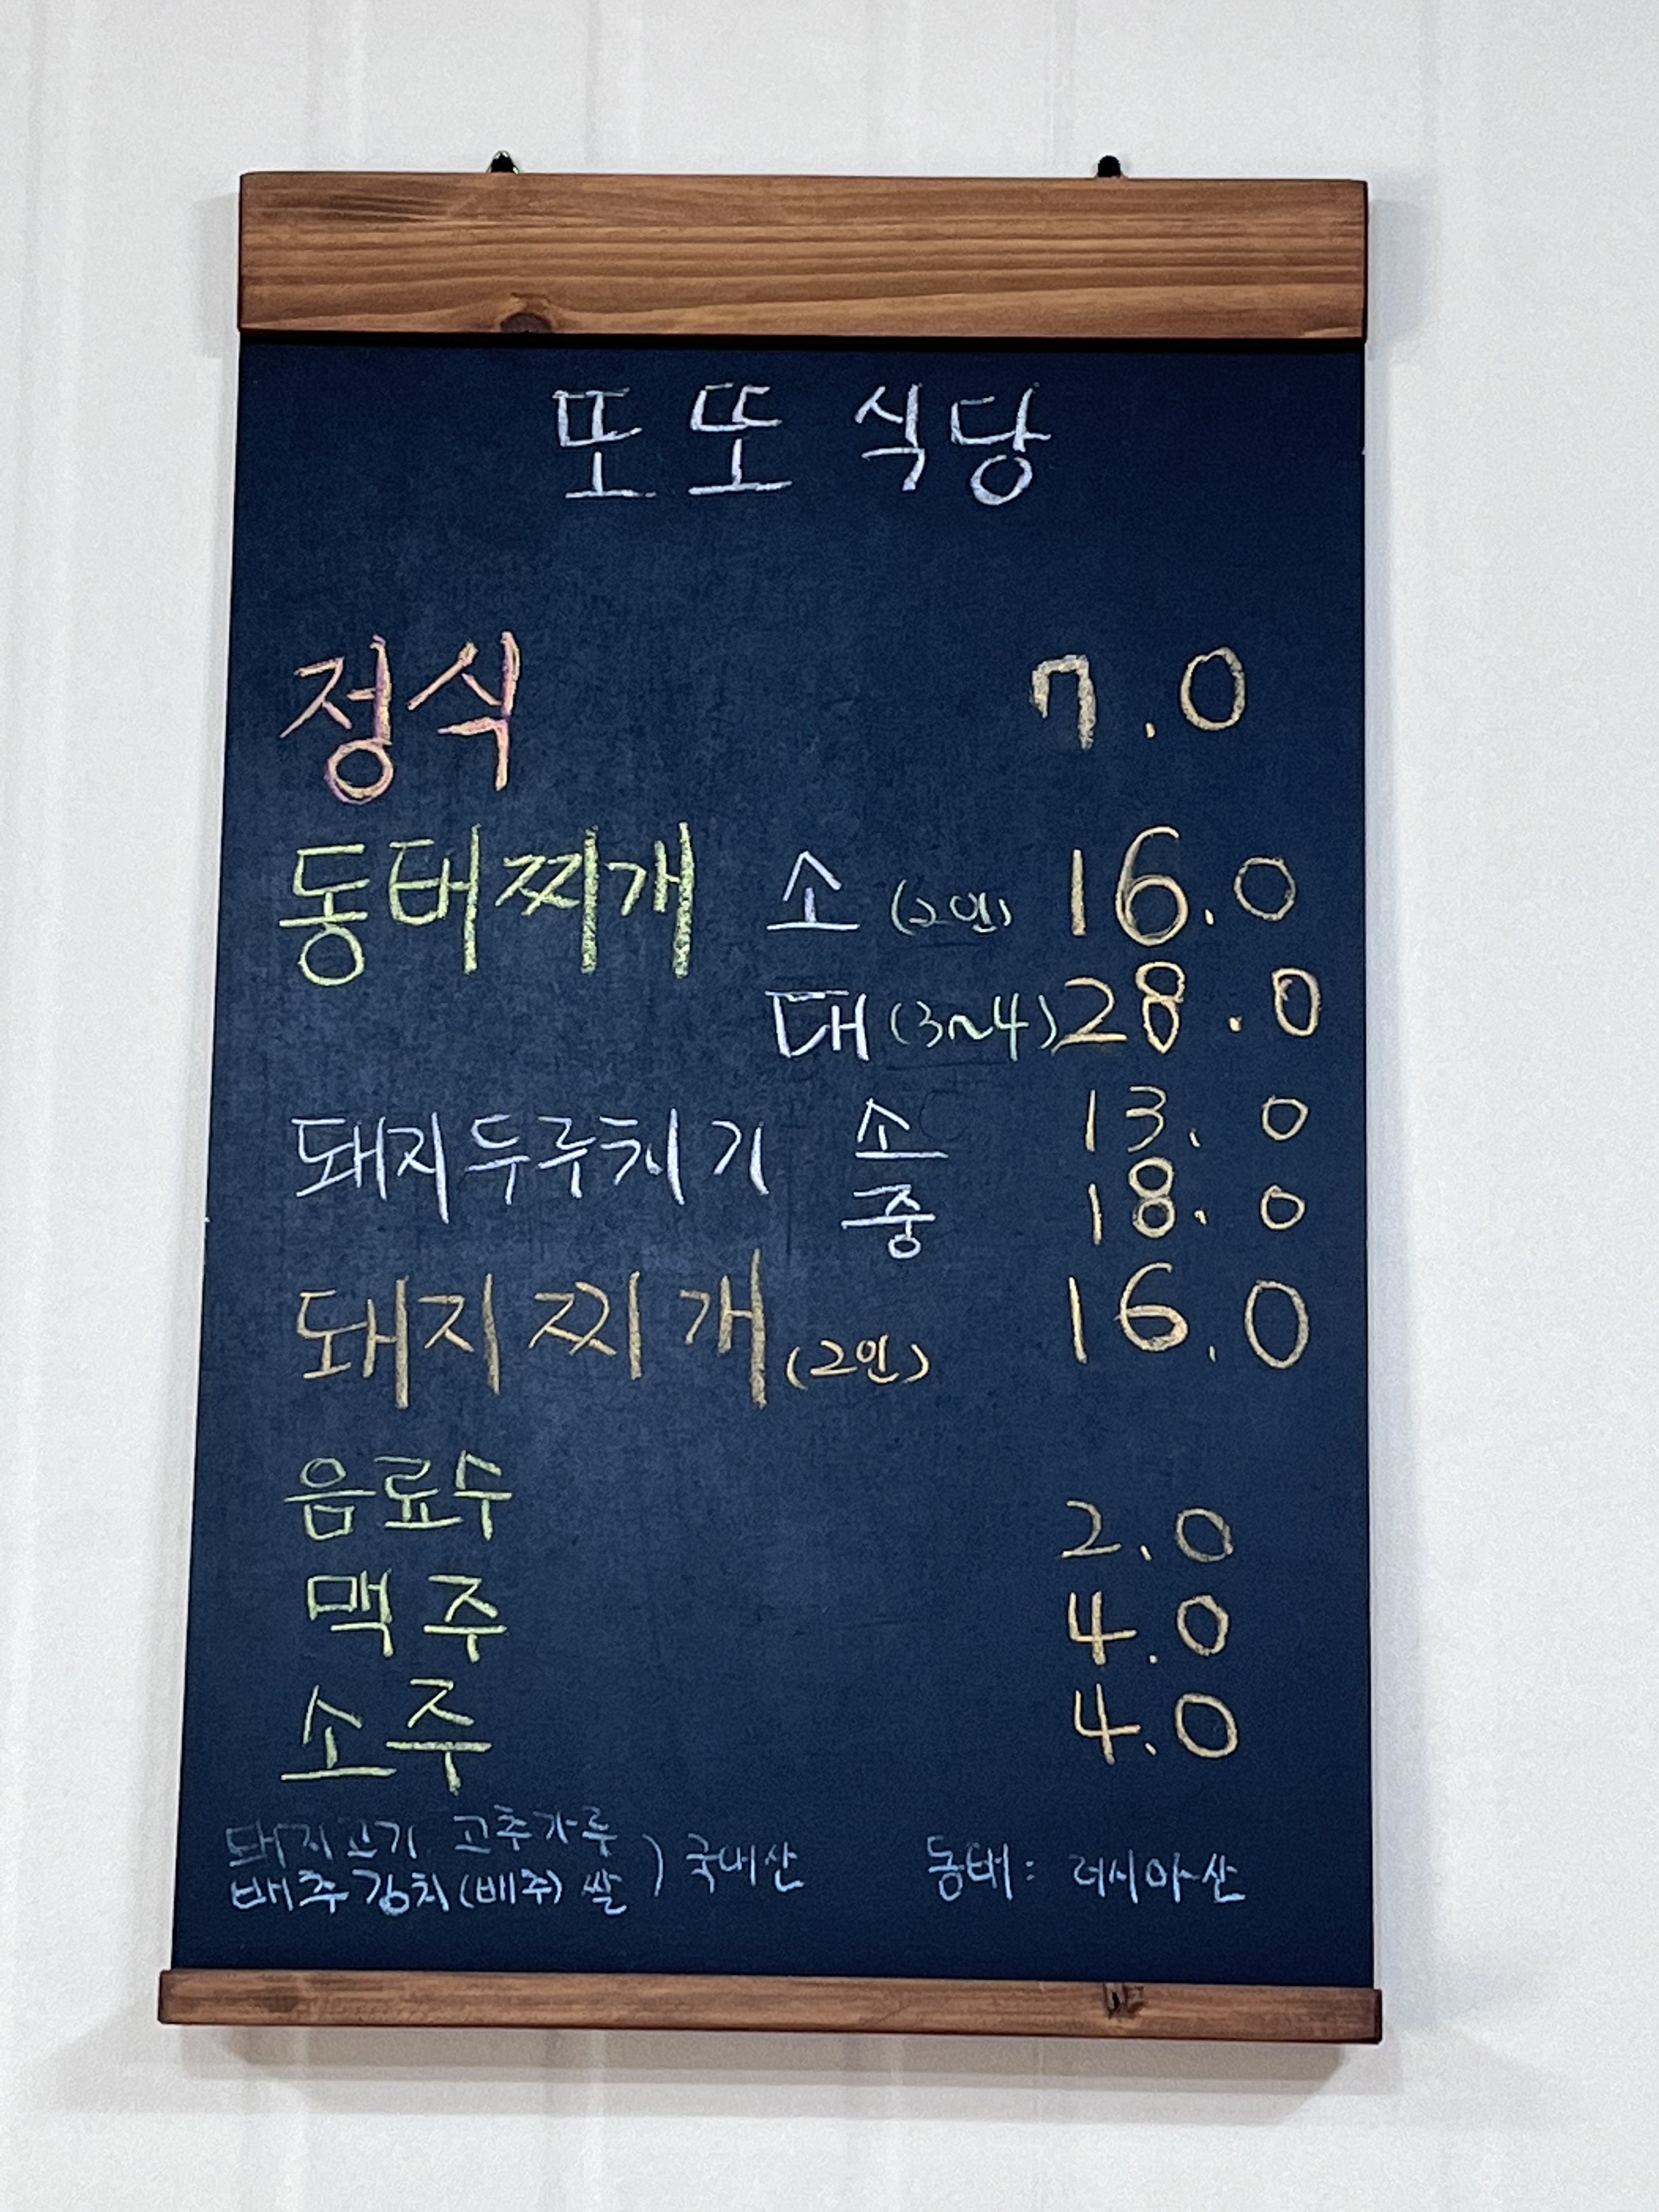 또또 식당
정식 7.0
동태찌개 소 (2인) 16.0
대 (3~4) 28.0
돼지두루치기 소 13.0
중 18.0
돼지찌개 (2인) 16.0
음료수 2.0
맥주 4.0
소주 4.0
돼지고기, 고추가루
배추김치(배추) 쌀 ) 국내산
동태: 러시아산